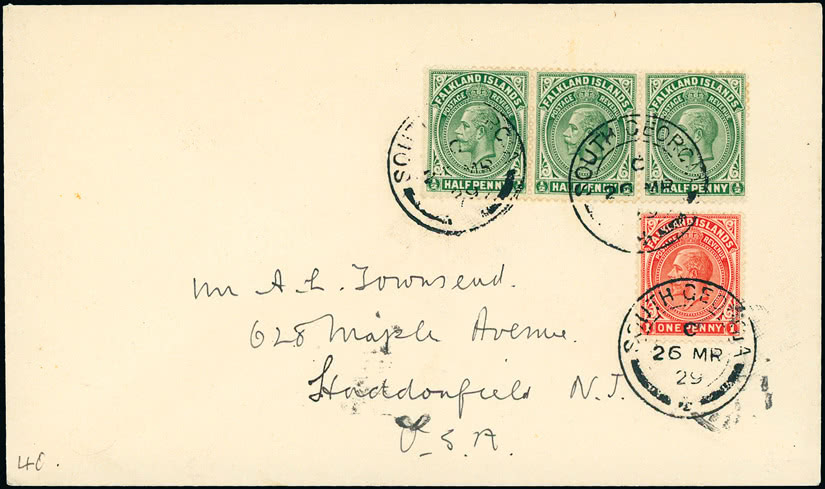 FALKLAND ISLANDS FALKLAND ISLANDS FALKLAND ISLANDS
POSTAGE REVENUE POSTAGE REVENUE POSTAGE REVENUE
½ HALF PENNY ½ ½ HALF PENNY ½ ½ HALF PENNY ½
SOUTH GEORGIA
C
26 MR
29
FALKLAND ISLANDS
POSTAGE REVENUE
1 ONE PENNY 1
SOUTH GEORGIA
C
26 MR
29
Mr A. L. Townsend.
628 Maple Avenue.
Haddonfield N. J.
U.S.A.
40.